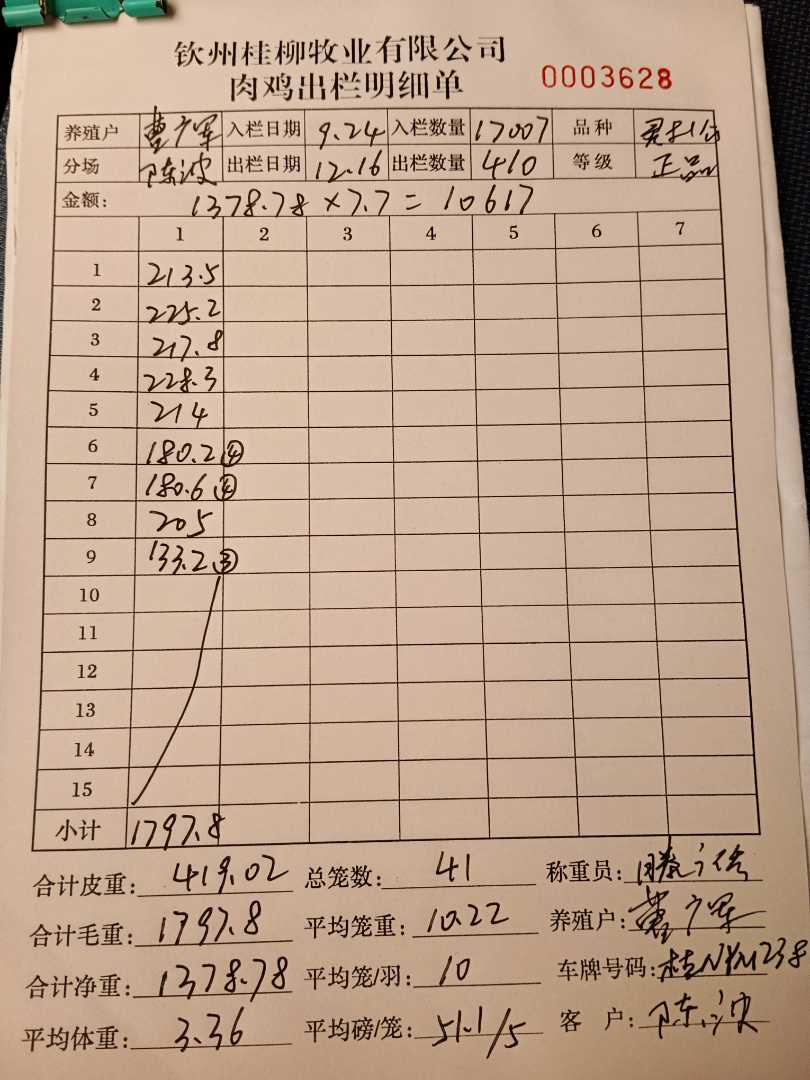 钦州桂柳牧业有限公司
肉鸡出栏明细单 0003628
养殖户 曹广军 入栏日期 9.24 入栏数量 17007 品种
分场 陈波 出栏日期 12.16 出栏数量 410 等级 正品
金额: 1378.78×7.7=10617
1 2 3 4 5 6 7
1 213.5
2 225.2
3 217.8
4 228.3
5 214
6 180.2 ④
7 180.6 ④
8 205
9 133.2 ③
10
11
12
13
14
15
小计 1797.8
合计皮重: 419.02 总笼数: 41 称重员:
合计毛重: 1797.8 平均笼重: 10.22 养殖户: 曹广军
合计净重: 1378.78 平均笼/羽: 10 车牌号码:
平均体重: 3.36 平均磅/笼: 51.1/5 客 户: 陈波